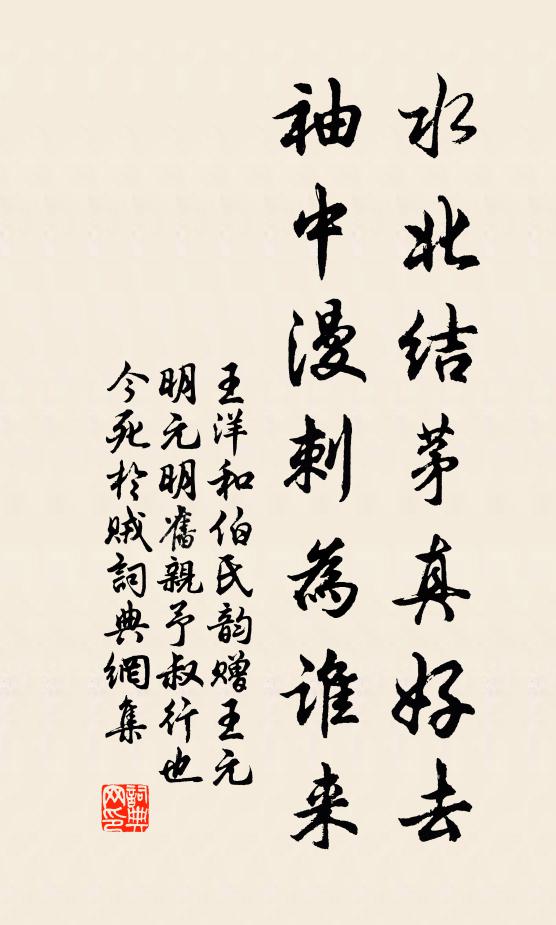 水北结茅真好去
袖中漫刺為谁来
王洋和伯氏韵赠王元
明元明旧親予叔行也
今死於贼詞典網集
詞典网印